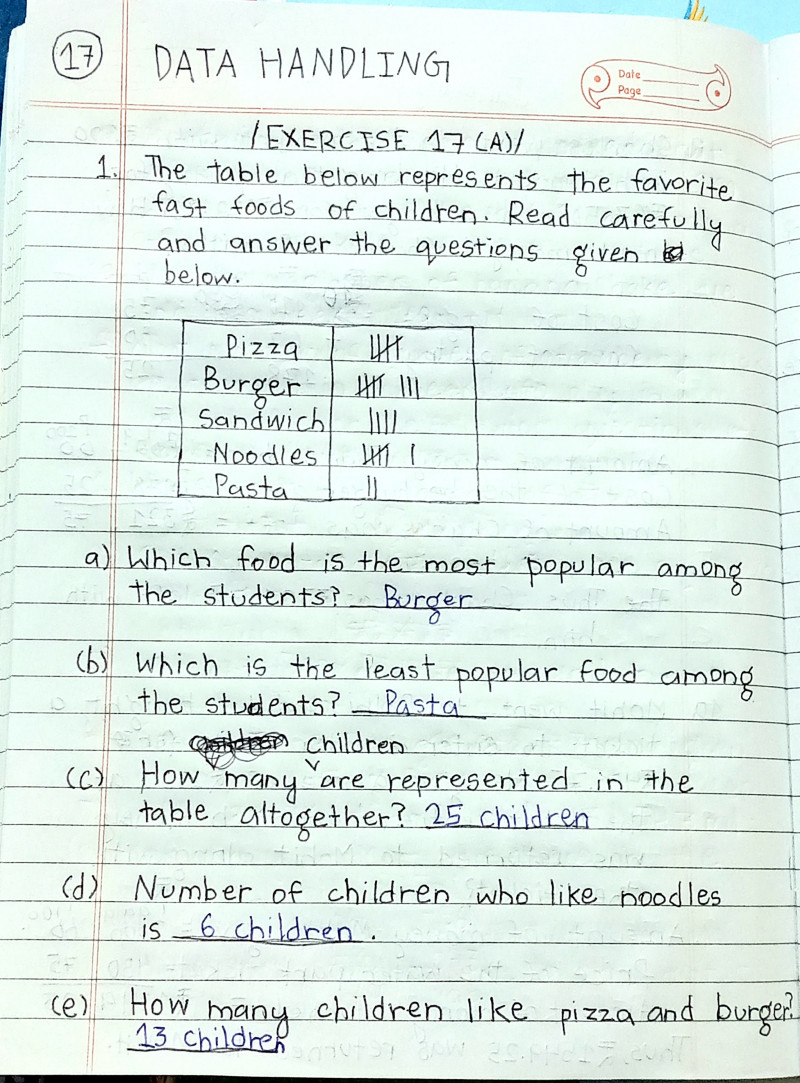 17 DATA HANDLING
Date
Page
/EXERCISE 17 (A)/
1. The table below represents the favorite
fast foods of children. Read carefully
and answer the questions given
below.
Pizza 𝍸
Burger 𝍸 |||
Sandwich ||||
Noodles 𝍸 |
Pasta ||
a) Which food is the most popular among
the students? Burger
(b) Which is the least popular food among
the students? Pasta
children
(c) How many are represented in the
table altogether? 25 children
(d) Number of children who like noodles
is 6 children.
(e) How many children like pizza and burger?
13 children